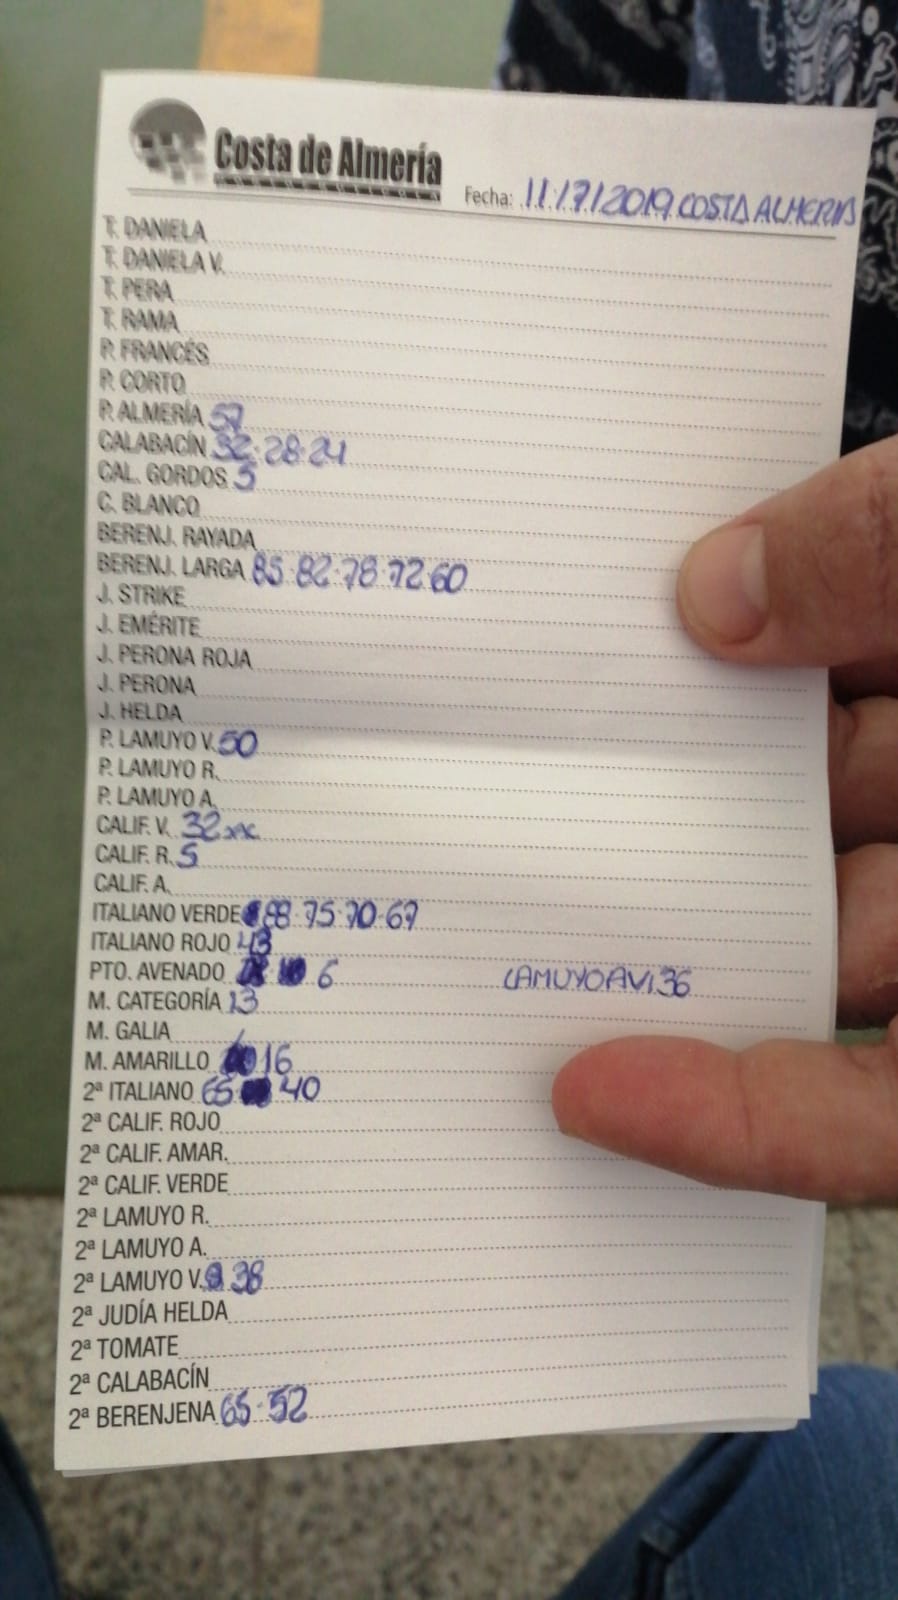 Costa de Almería
Fecha: 11/7/2019 COSTA ALMERIA
T. DANIELA
T. DANIELA V.
T. PERA
T. RAMA
P. FRANCÉS
P. CORTO
P. ALMERÍA 57
CALABACÍN 32·28·24
CAL. GORDOS 5
C. BLANCO
BERENJ. RAYADA
BERENJ. LARGA 85·82·78·72·60
J. STRIKE
J. EMÉRITE
J. PERONA ROJA
J. PERONA
J. HELDA
P. LAMUYO V. 50
P. LAMUYO R.
P. LAMUYO A.
CALIF. V. 32
CALIF. R. 5
CALIF. A.
ITALIANO VERDE 88·75·70·67
ITALIANO ROJO 43
PTO. AVENADO 6 LAMUYO AVI 36
M. CATEGORÍA 13
M. GALIA
M. AMARILLO 16
2ª ITALIANO 65 40
2ª CALIF. ROJO
2ª CALIF. AMAR.
2ª CALIF. VERDE
2ª LAMUYO R.
2ª LAMUYO A.
2ª LAMUYO V. 38
2ª JUDÍA HELDA
2ª TOMATE
2ª CALABACÍN
2ª BERENJENA 65·52